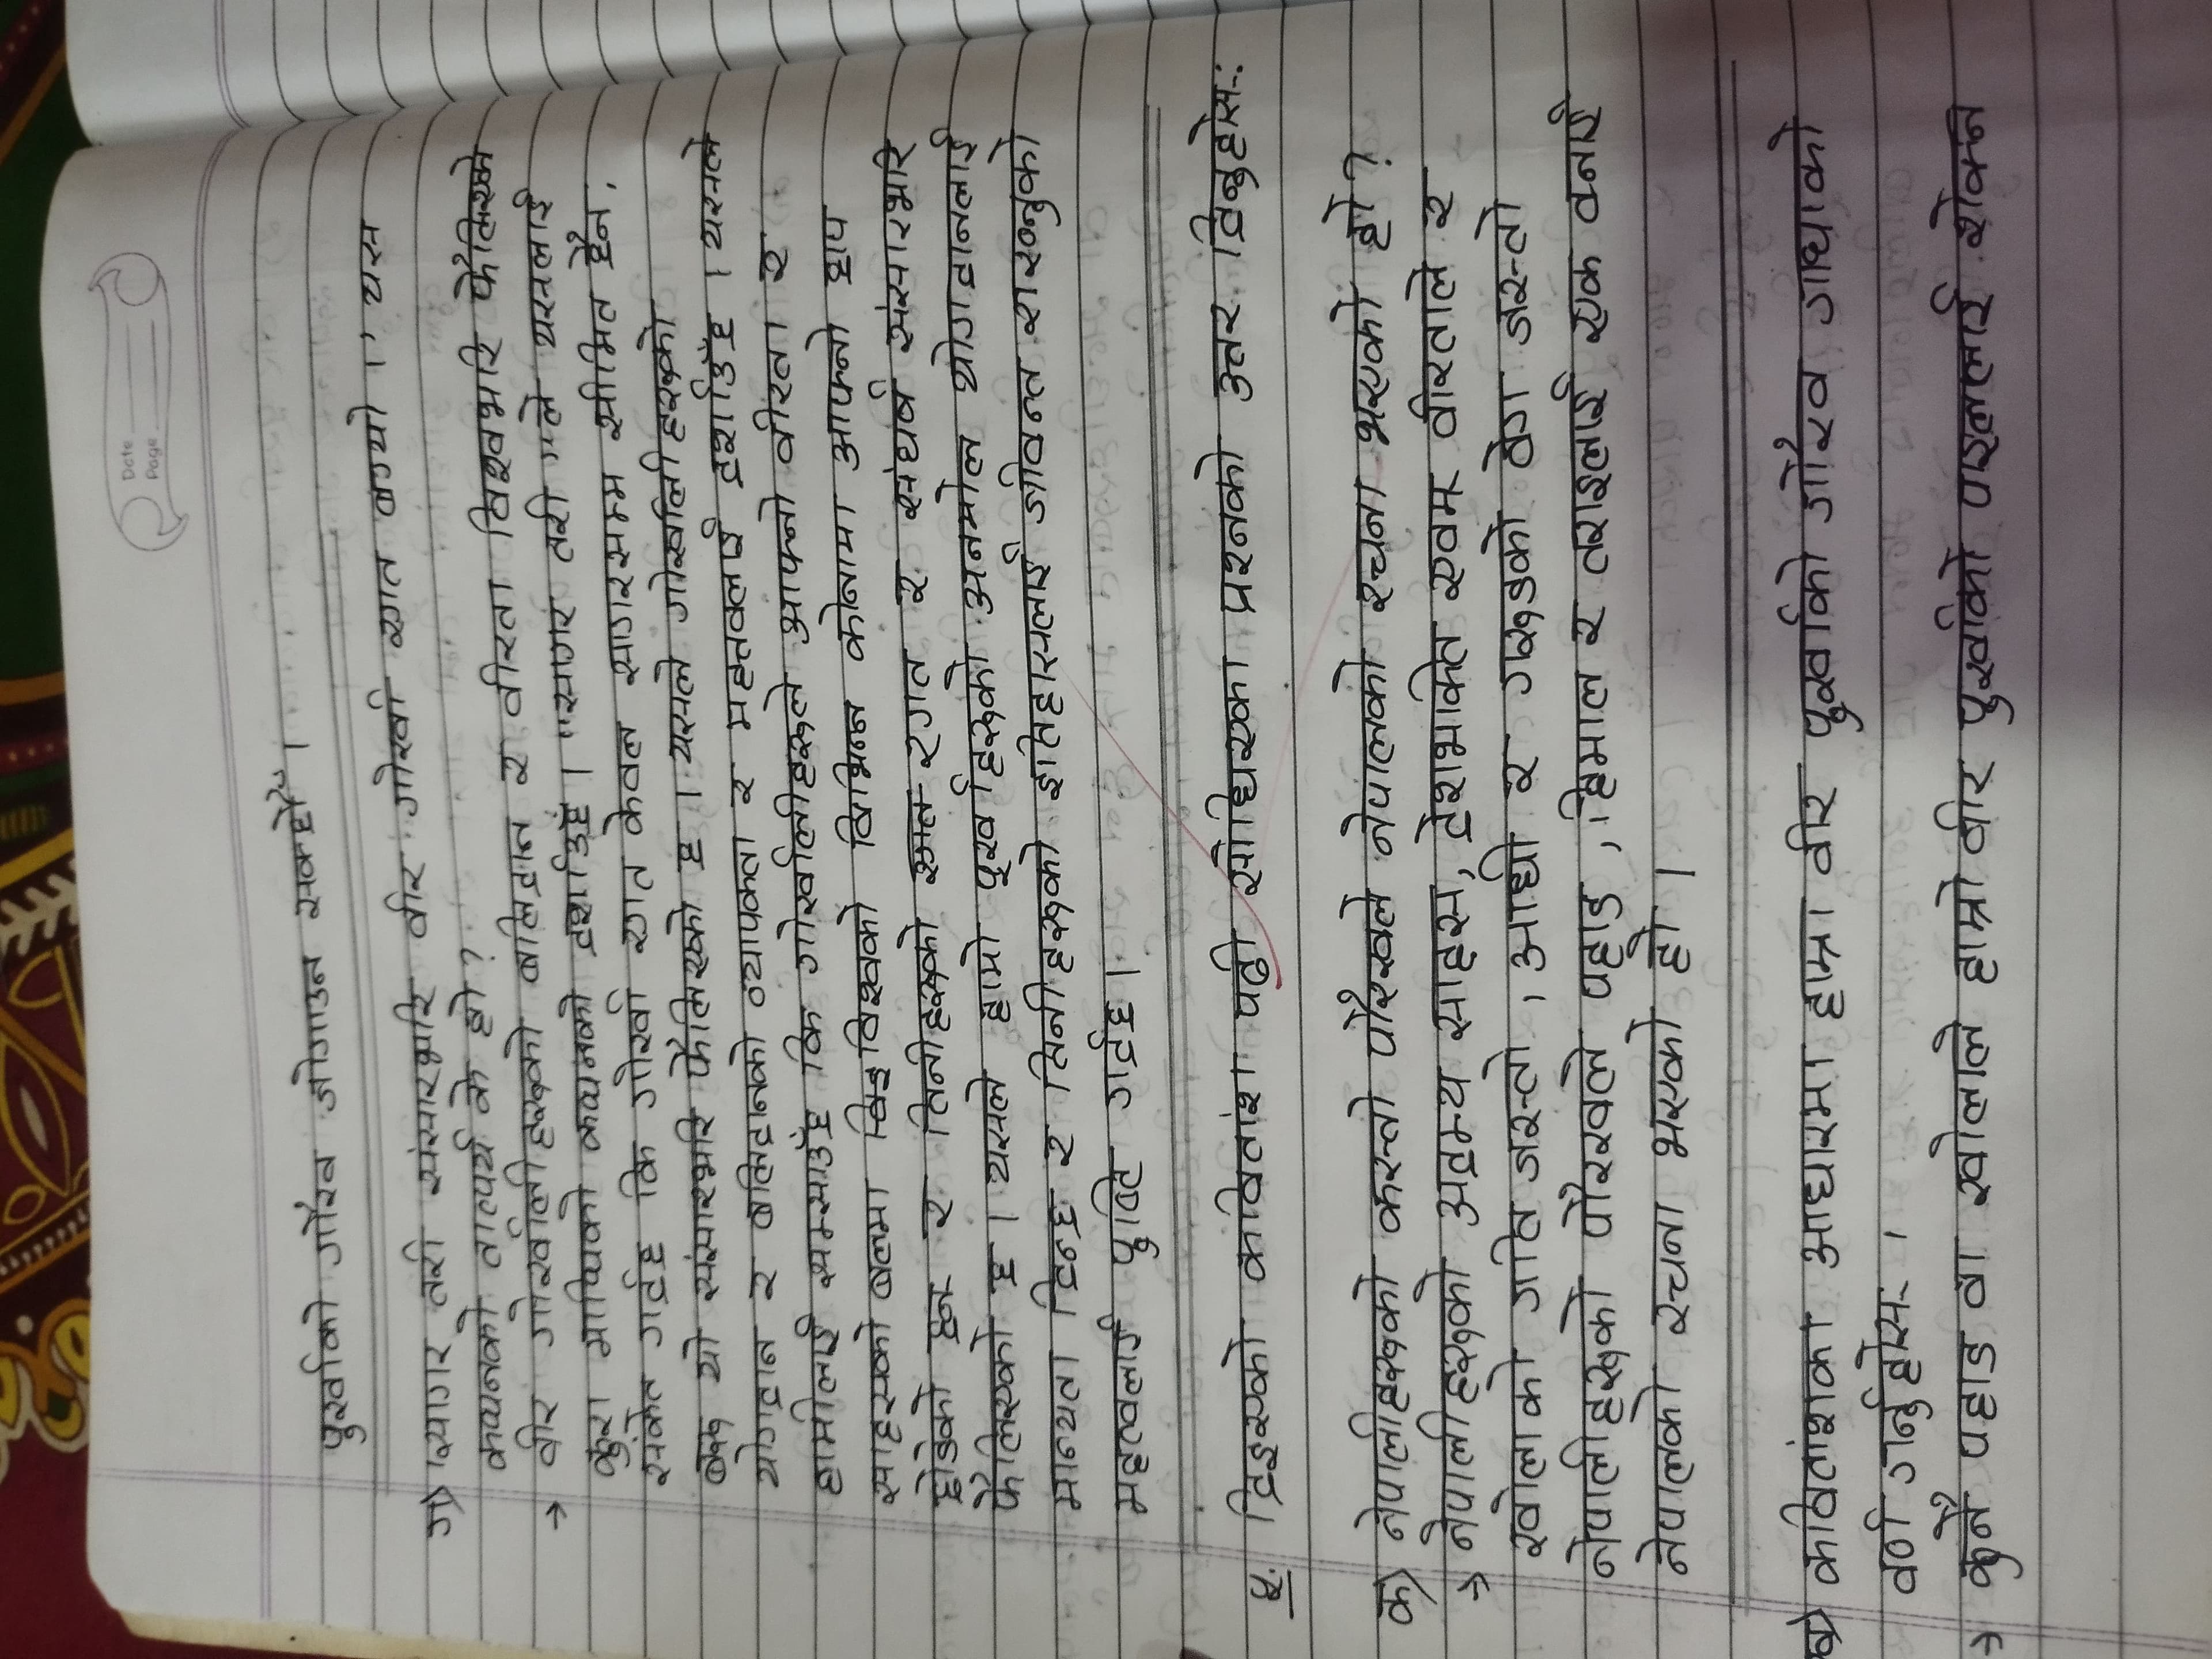 Date
Page
पुर्खाको गौरव जोगाउन सक्छौँ ।
ग) "सागर तरी संसारभरि वीर गोर्खा रगत बग्यो ।" यस
कथनको तात्पर्य के हो ?
→ वीर गोर्खालीहरूको बलिदान र वीरता विश्वभरि फैलिएको
कुरा माथिको कथनको दर्शाउछ । "सागर तरी" ले यसलाई
संकेत गर्दछ कि गोर्खा रगत केवल सागरसम्म सीमित छैन,
बरू यो संसारभरि फैलिएको छ । यसले गोर्खालीहरूको
योगदान र बलिदानको व्यापकता र महत्वलाई दर्शाउँछ । यसले
हामीलाई सम्साउँछ कि गोर्खालीहरूले आफ्नो वीरता र
साहसको बलमा विश्वको विभिन्न कोनामा आफ्नो छाप
छोडेको छन् र तिनीहरूको रगत र संघर्ष संसारभरि
फैलिएको छ । यसले हाम्रो पूर्खाहरूको अनमोल योगदानलाई
मान्यता दिन्छ र तिनीहरूको इतिहासलाई जीवन्त राख्नुको
महत्वलाई पुष्टि गर्दछ ।
५. दिइएको कवितांश पढी सोधिएका प्रश्नको उत्तर दिनुहोस्:
क) नेपालीहरूको कस्तो पौरखले नेपालको रचना भएको हो ?
→ नेपालीहरूको अदम्य साहस, देशभक्ति एवम् वीरताले र
खोलाको गति जस्तो, आँधी र गरूडको वेग जस्तो
नेपालीहरूको पौरखले पहाड, हिमाल र तराइलाई एक बनाई
नेपालको रचना भएको हो ।
ख) कवितांशका आधारमा हाम्रा वीर पुर्खाको गौरव गाथाको
वर्णन गर्नुहोस् ।
→ कुनै पहाड वा खोलाले हाम्रो वीर पुर्खाको पाइलालाई रोक्न